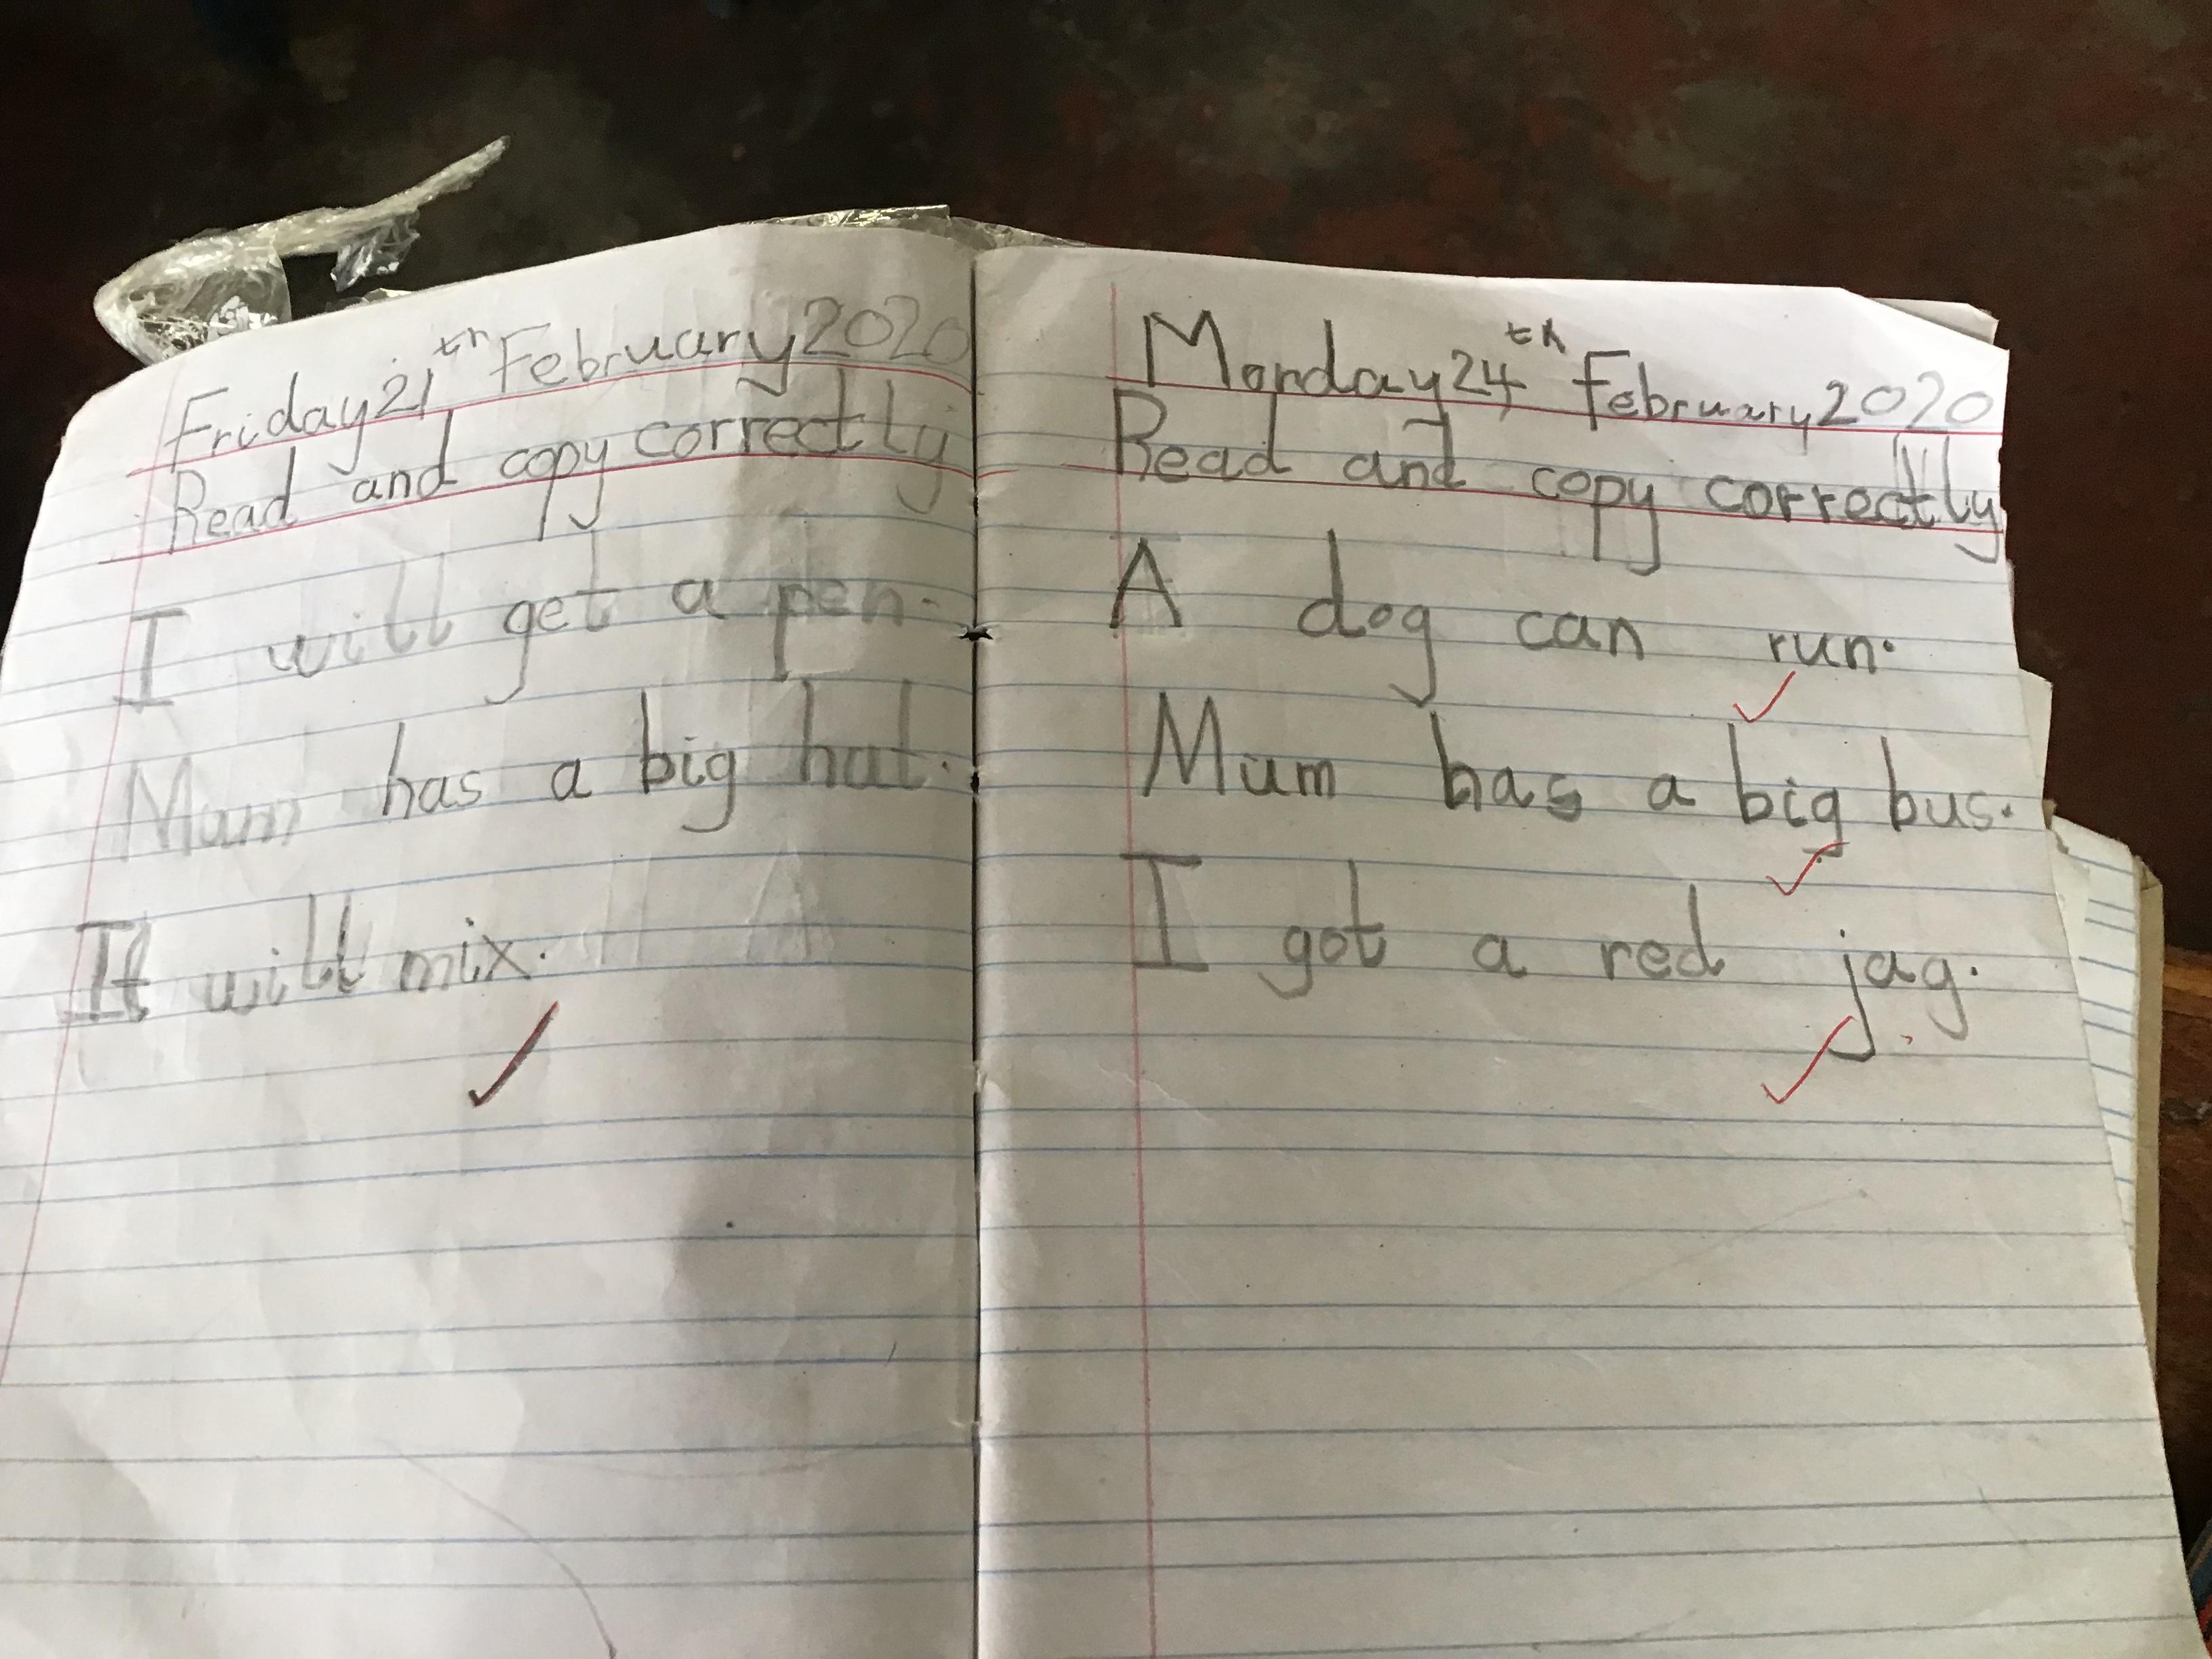 Friday 21th February 2020
Read and copy correctly
I will get a pen.
Mum has a big hat.
It will mix.
Monday 24th February 2020
Read and copy correctly
A dog can run.
Mum has a big bus.
I got a red jag.